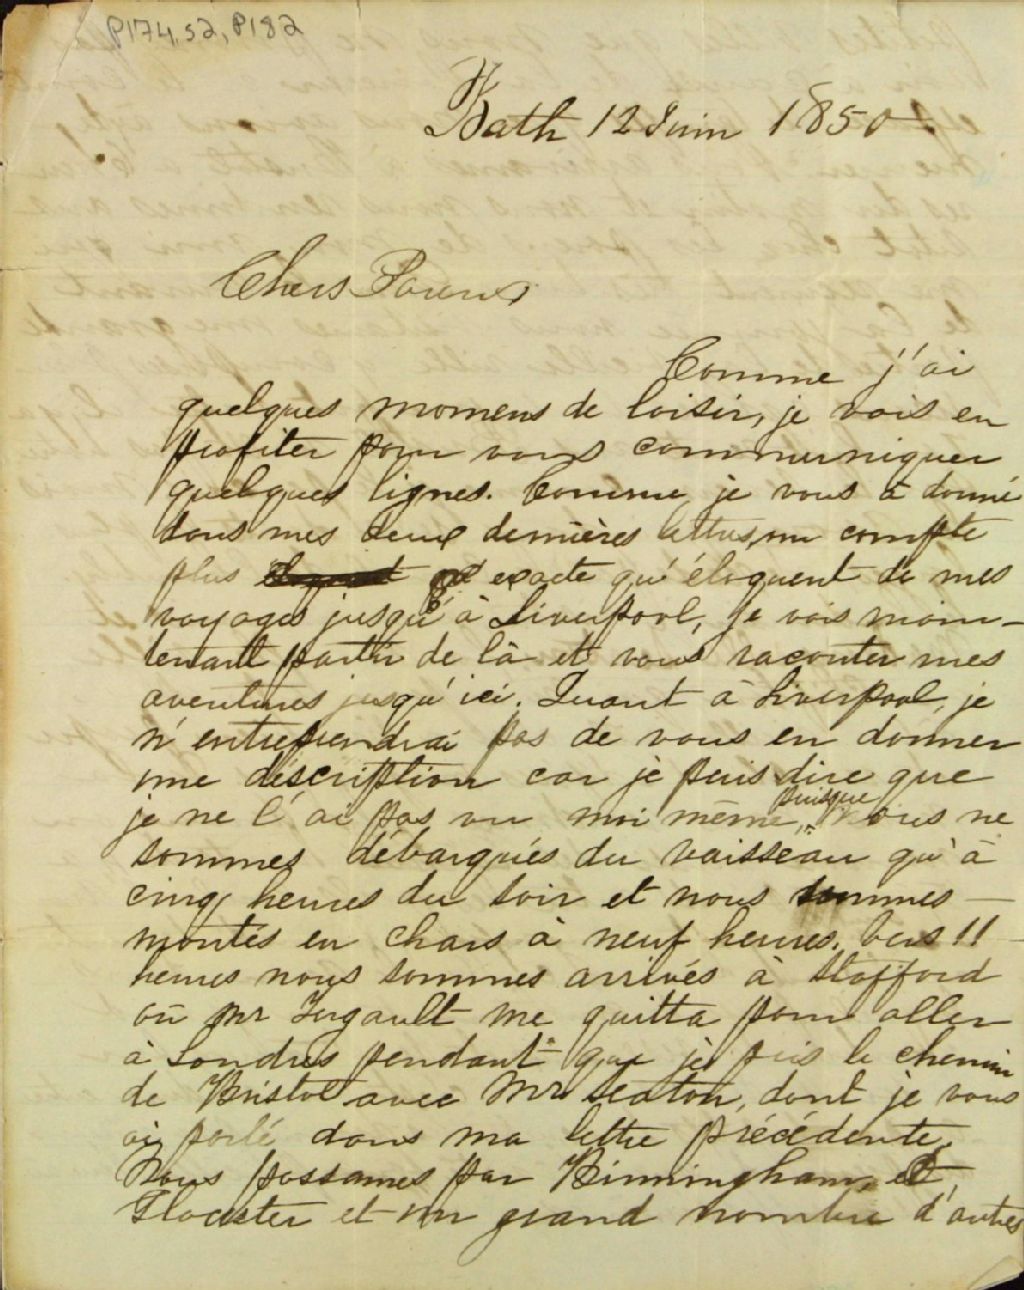 P174,S2,P182
Bath 12 Juin 1850
Chers Parents
Comme j'ai
quelques momens de loisir, je vais en
profiter pour vous communiquer
quelques lignes. Comme je vous ai donné
dans mes deux dernières lettres, un compte
plus exacte qu'éloquent de mes
voyages jusqu'à Liverpool, je vais main-
tenant partir de là et vous raconter mes
aventures jusqu'ici. Quant à Liverpool, je
n'entreprendrai pas de vous en donner
une description car je puis dire que
je ne l'ai pas vu moi même, puisque nous ne
sommes débarqués du vaisseau qu'à
cinq heures du soir et nous sommes
montés en chars à neuf heures. Vers 11
heures nous sommes arrivés à Stafford
où Mr me quitta pour aller
à Londres pendant que je pris le chemin
de Bristol avec Mr Seaton, dont je vous
ai parlé dans ma lettre précédente.
Nous passames par Birmingham, et
Glocester et un grand nombre d'autres